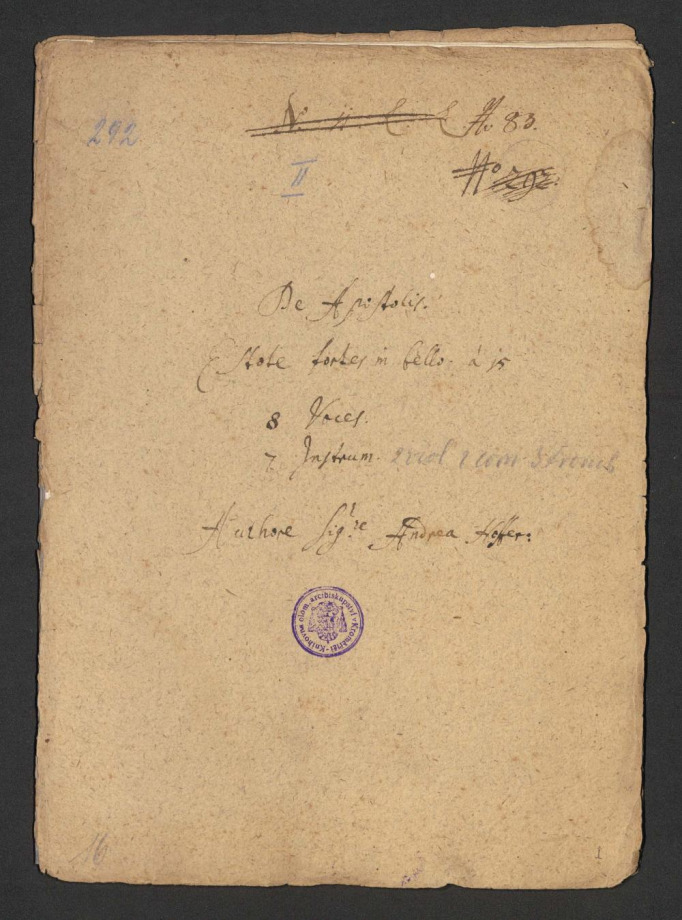 292
N. 11 No 83.
II
No 292.
De Apostolis.
Estote fortes in bello. à 15
8 Voces.
7 Instrum. 2 viol 2 corn 3 tromb
Authore Sig:re Andrea Hoffer:
Knihovna olom. arcibiskupství v Kroměříži
16
1